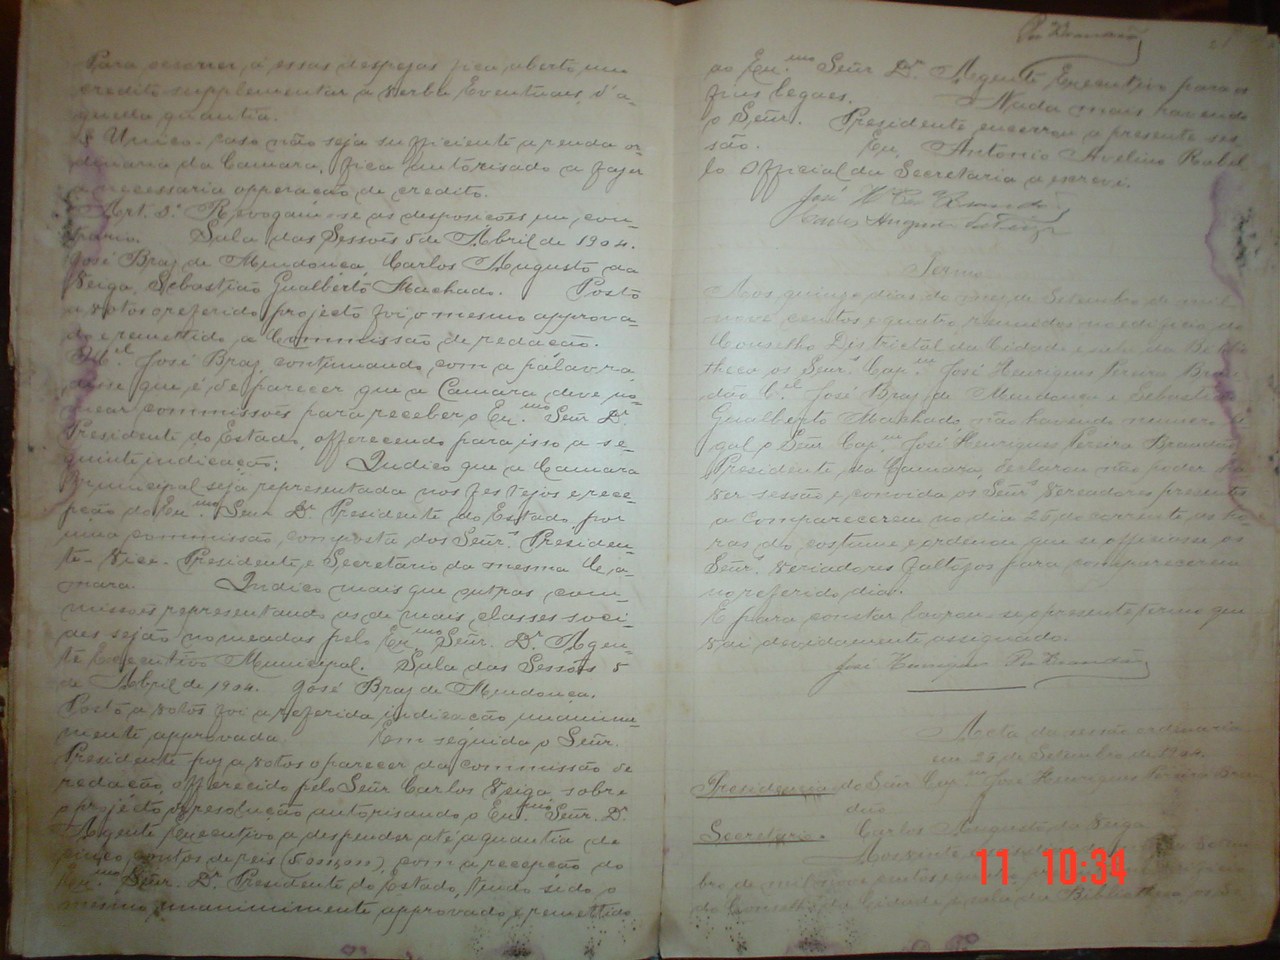 Para occorrer á essas despezas fica aberto um
credito supplementar a verba Eventuais, d'a-
quella quantia.
§ Unico. Caso não seja sufficiente a renda or-
dinaria da Camara, fica autorisado a fazer
a necessaria opperação de credito.
Art. 3º Revogam-se as desposicões em con-
trario. Sala das Sessões 5 de Abril de 1904.
José Braz de Mendonca, Carlos Augusto da
Veiga, Sebastião Gualberto Machado. Posto
a votos o referido projecto foi o mesmo approva-
do e remettido a Commissão de redacão.
O Cel José Braz, continuando com a palavra
disse que é de parecer que a Camara deve no-
mear commissões para receber o Exmo Señr Dr
Presidente do Estado, offerecendo para isso a se-
guinte indicação: Indico que a Camara
Municipal seja representada nos festejos e rece-
pção do Exmo Señr Dr Presidente do Estado, por
uma commissão composta dos Señrs Presiden-
te - Vice-Presidente e Secretario da mesma Ca-
mara. Indico mais que outras com-
missões representando as de mais classes soci-
aes sejão nomeadas pelo Exmo Señr. Dr. Agen-
te Executivo Municipal. Sala das Sessões 5
de Abril de 1904. José Braz de Mendonca.
Posto a votos foi a referida indicacão unanime-
mente approvada. Em seguida o Señr.
Presidente poz a votos o parecer da commissão de
redacão, offerecido pelo Señr Carlos Veiga, sobre
o projecto de resolução autorisando o Exmo Señr. Dr.
Agente Executivo a despender até a quantia de
cinco contos de reis (5:000$000), com a recepcão do
Exmo Señr. Dr. Presidente do Estado, tendo sido o
mesmo unanimimente approvado e remettido
Per Brandão
21
ao Exmo Señr Dr. Agente Executivo para os
fins legaes. Nada mais havendo
o Señr. Presidente encerrou a presente ses
são. Eu, Antonio Avelino Rabel
lo Official da Secretaria a escrevi.
José H Per Brandão
Carlos Augusto da Veiga
Termo
Aos quinze dias do mez de Setembro de mil
nove centos e quatro reunidos no edificio do
Conselho Districtal da Cidade e sala da Biblio
theca os Señrs Capm José Henriques Pereira Bran
dão Cel José Braz de Mendonca e Sebastião
Gualberto Machado, não havendo numero le
gal o Señr Capm José Henriques Pereira Brandão
Presidente da Camara, declarou não poder ha
ver sessão e convida os Señrs Vereadores presentes
a comparecerem no dia 25 do corrente, as ho
ras do costume e ordenou que se officiasse os
Señrs. Veriadores faltosos para comparecerem
no referido dia.
E para constar lavrou-se o presente termo que
vai devidamente assignado.
José Henriques Per Brandão
Acta da sessão ordenaria
em 25 de Setembro de 1904.
Presidencia do Señr Capm José Henriques Pereira Bran
dão
Secretario. Carlos Augusto da Veiga
Aos vinte
bro de mil nove centos e quatro
do Conselho da Cidade e sala da Bibliotheca, os Se
11 10:34